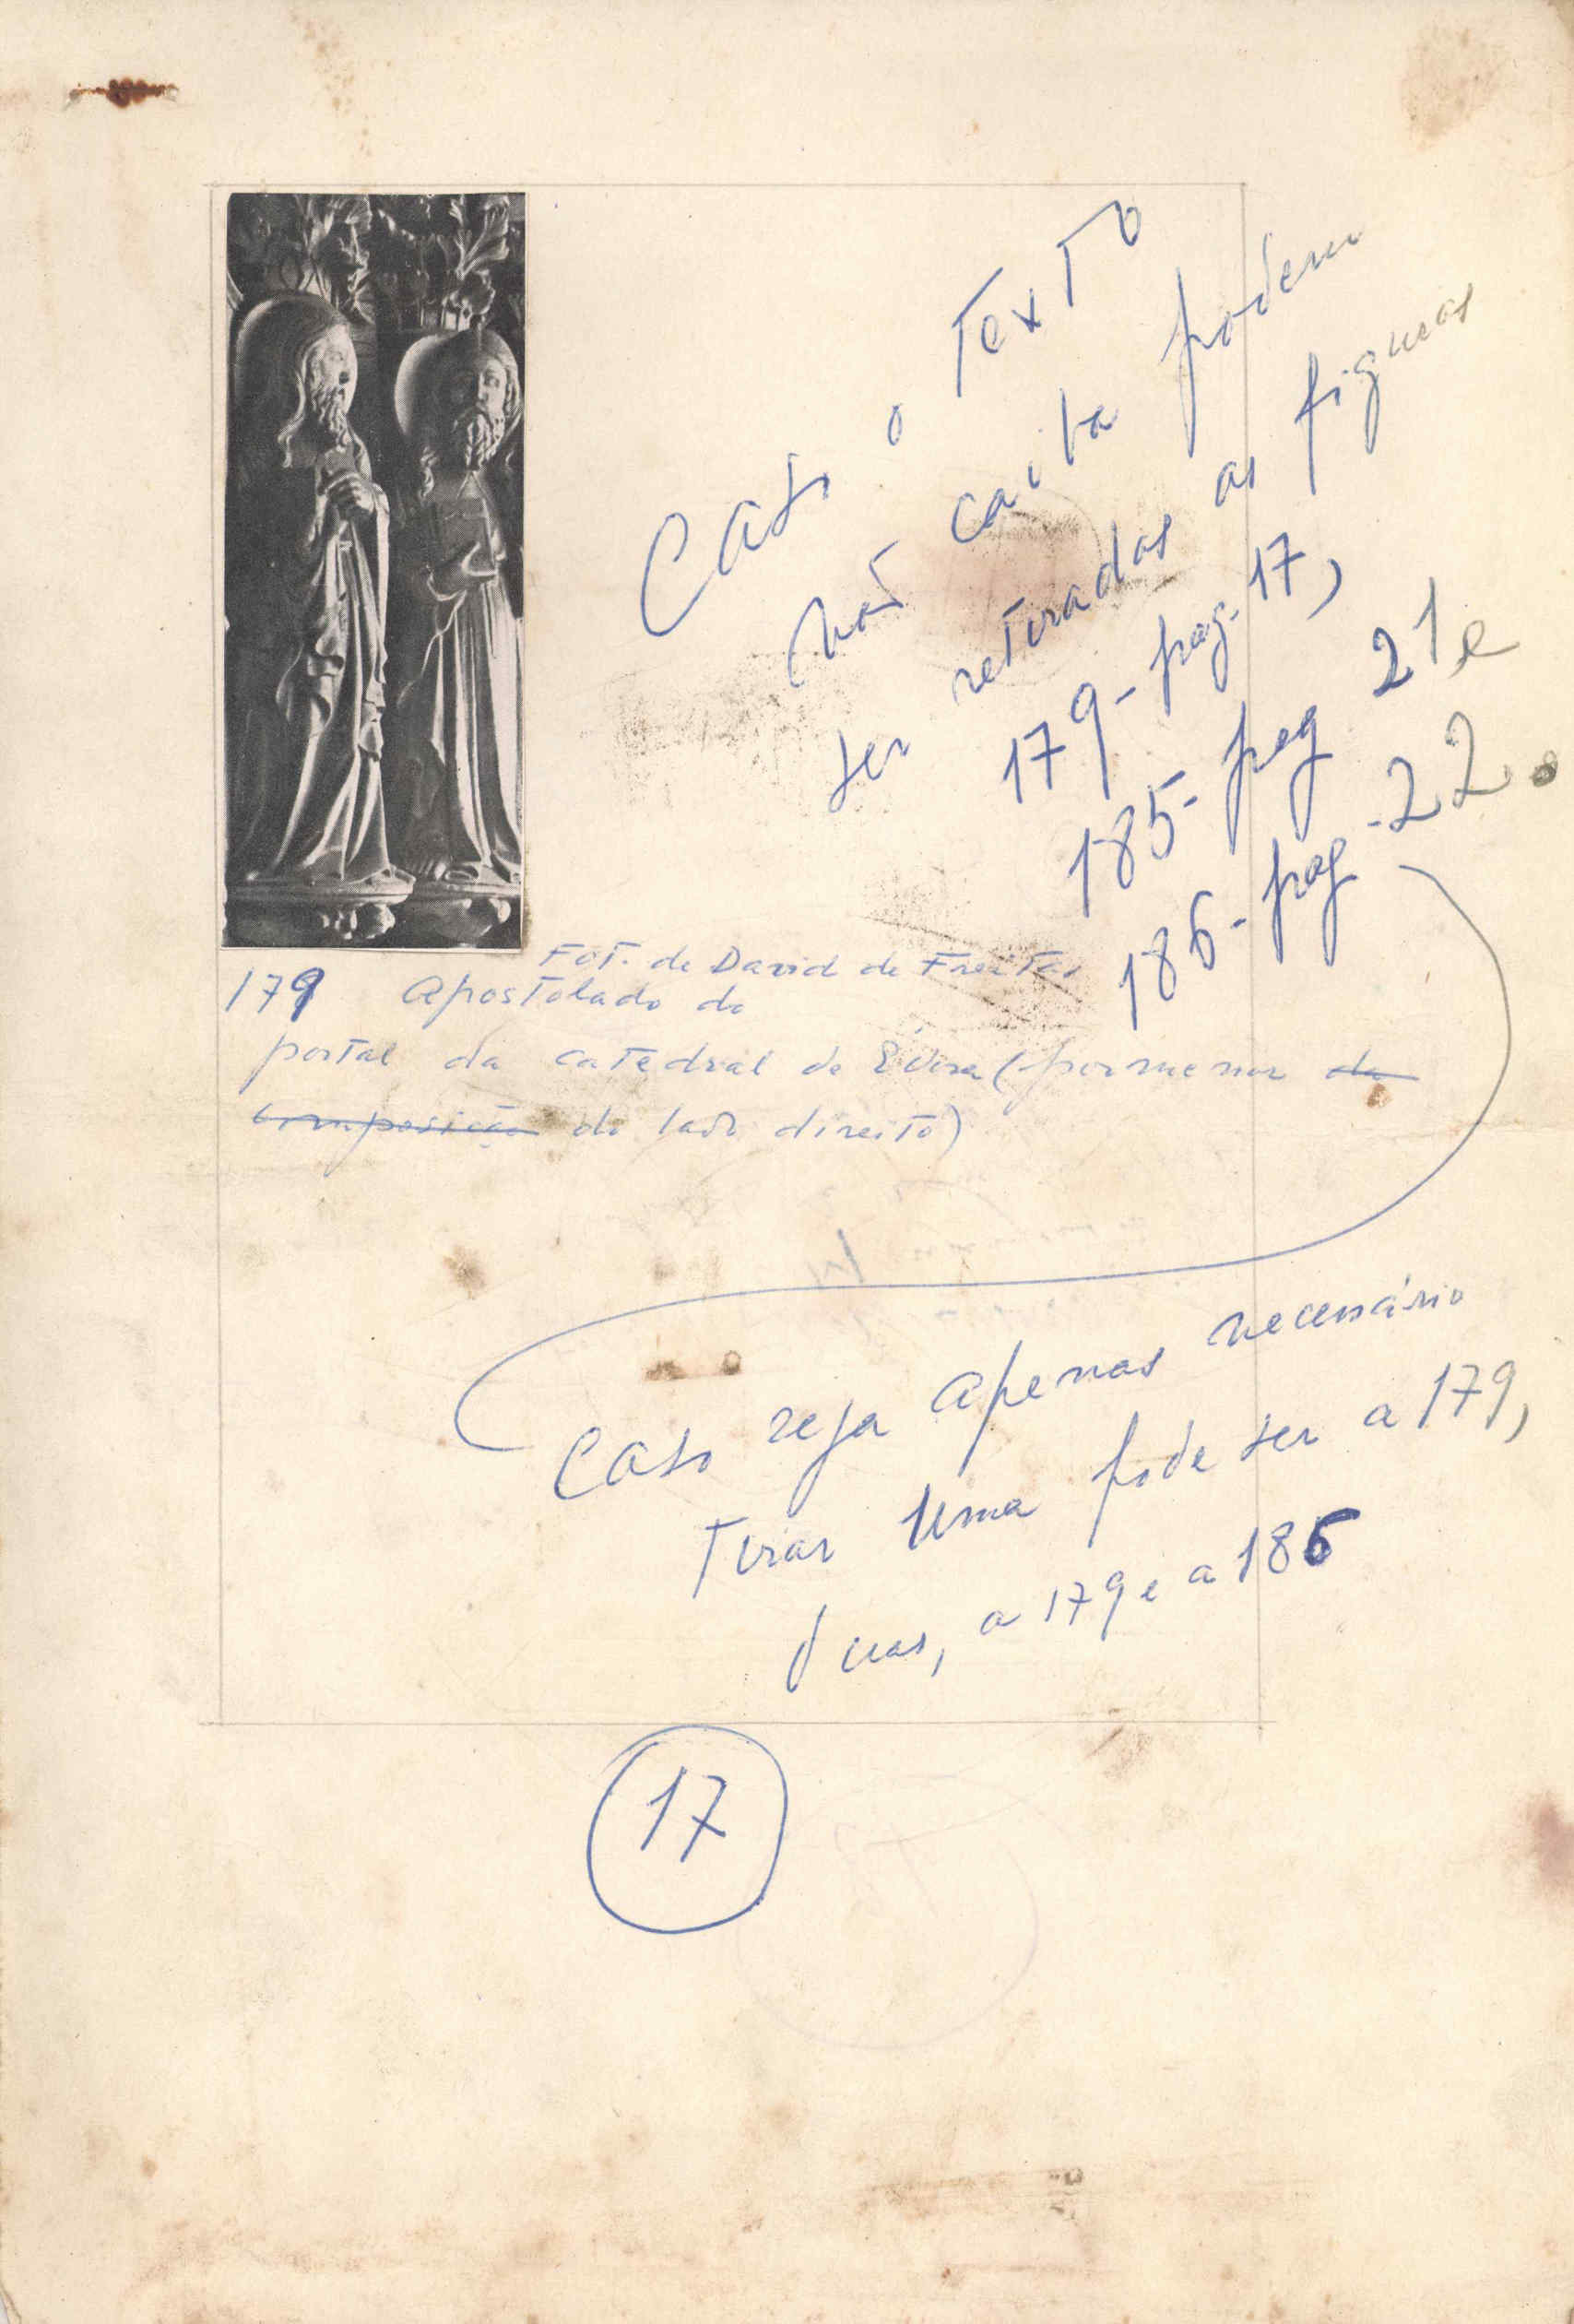 Caso o Texto
não caiba podem
ser retiradas as figuras
179 - pag. 17,
185 - pag 21 e
186 - pag - 22.
Fot. de David de Freitas
179 Apostolado do
portal da catedral de Évora (pormenor da
composição do lado direito)
Caso seja apenas necessário
Tirar uma pode ser a 179,
duas, a 179 e a 186
17